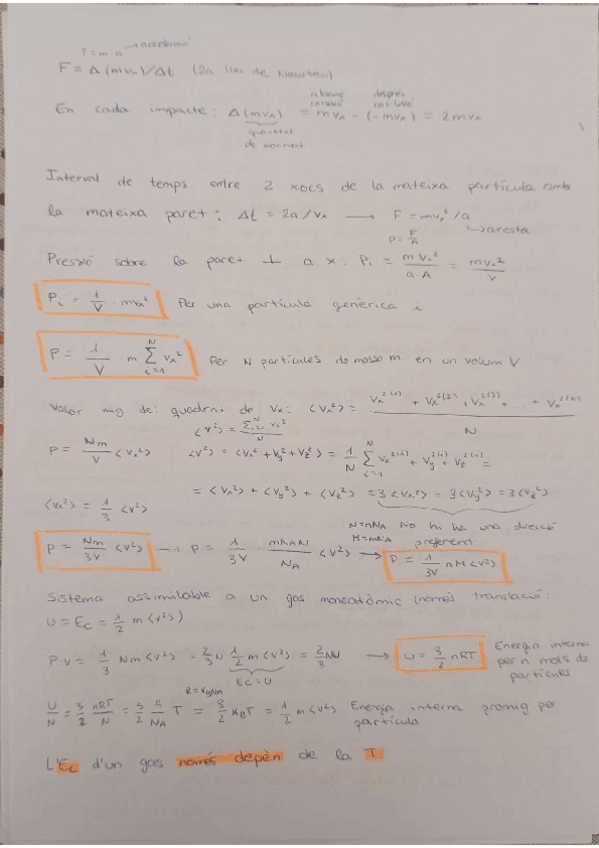 F = m·a → acceleració
F = Δ(mvₓ)/Δt (2a llei de Newton)
abans col·lisió després col·lisió
En cada impacte: Δ(mvₓ) = mvₓ - (-mvₓ) = 2mvₓ
quantitat de moviment
Interval de temps entre 2 xocs de la mateixa partícula amb
la mateixa paret: Δt = 2a/vₓ → F = mvₓ²/a
P = F/A ↳ aresta
Pressió sobre la paret ⊥ a x: Pᵢ = mvₓ²/a·A = mvₓ²/V
Pᵢ = 1/V · mvₓ² Per una partícula genèrica i.
P = 1/V · m Σᵢ₌₁ᴺ vₓ² Per N partícules de massa m en un volum V
Valor mig del quadrat de vₓ: <vₓ²> = vₓ²⁽¹⁾ + vₓ²⁽²⁾ + vₓ²⁽³⁾ + ... + vₓ²⁽ⁿ⁾ / N
<v²> = Σᵢ₌₁ᴺ vᵢ² / N
P = Nm/V <vₓ²> <v²> = <vₓ² + v_y² + v_z²> = 1/N Σᵢ₌₁ᴺ vₓ²⁽ⁱ⁾ + v_y²⁽ⁱ⁾ + v_z²⁽ⁱ⁾ =
= <vₓ²> + <v_y²> + <v_z²> = 3<vₓ²> = 3<v_y²> = 3<v_z²>
<vₓ²> = 1/3 <v²>
N=nNA No hi ha una direcció
M=mNA preferent
P = Nm/3V <v²> → P = 1/3V mNAN/NA <v²> → P = 1/3V nM<v²>
Sistema assimilable a un gas monoatòmic (només translació:
U = Ec = 1/2 m<v²>)
PV = 1/3 Nm<v²> = 2/3 N 1/2 m<v²> = 2/3 NU → U = 3/2 nRT Energia interna
per n mols de
partícules
Ec=U
U/N = 3/2 nRT/N = 3/2 R/NA T = 3/2 KBT = 1/2 m<v²> Energia interna promig per
partícula.
L'Ec d'un gas només depèn de la T